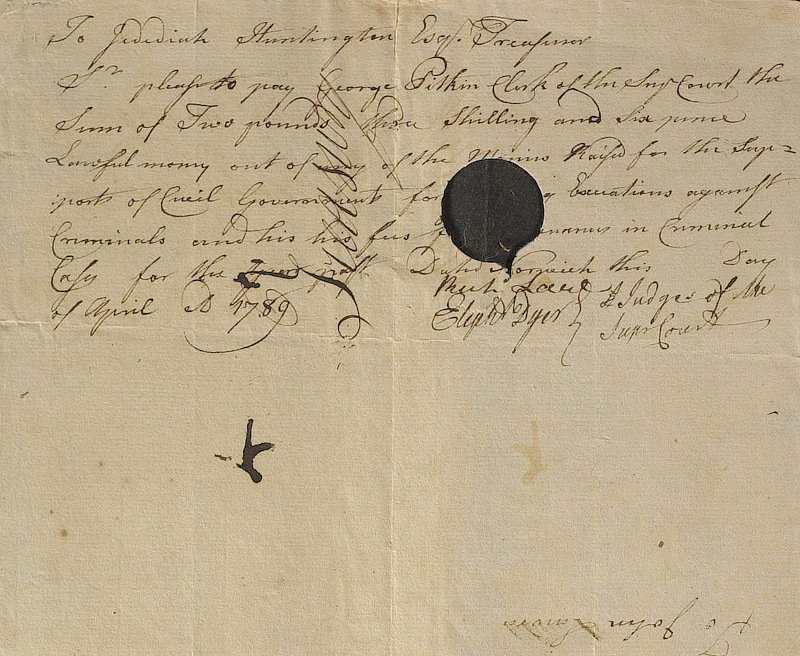 To Jedediah Huntington Esqr. Treasurer
Sr. please to pay George Pitkin Clerk of the Supr Court the
Sum of Two pounds three Shilling and Six pence
Lawful money out of any of the Monies Raised for the Sup=
port of Civil Government for Executions against
Criminals and his fees in Criminal
Cases for the year past Dated Norwich this Day
of April AD 1789
Eliph Dyer
Judges of the
Supr Court
To John